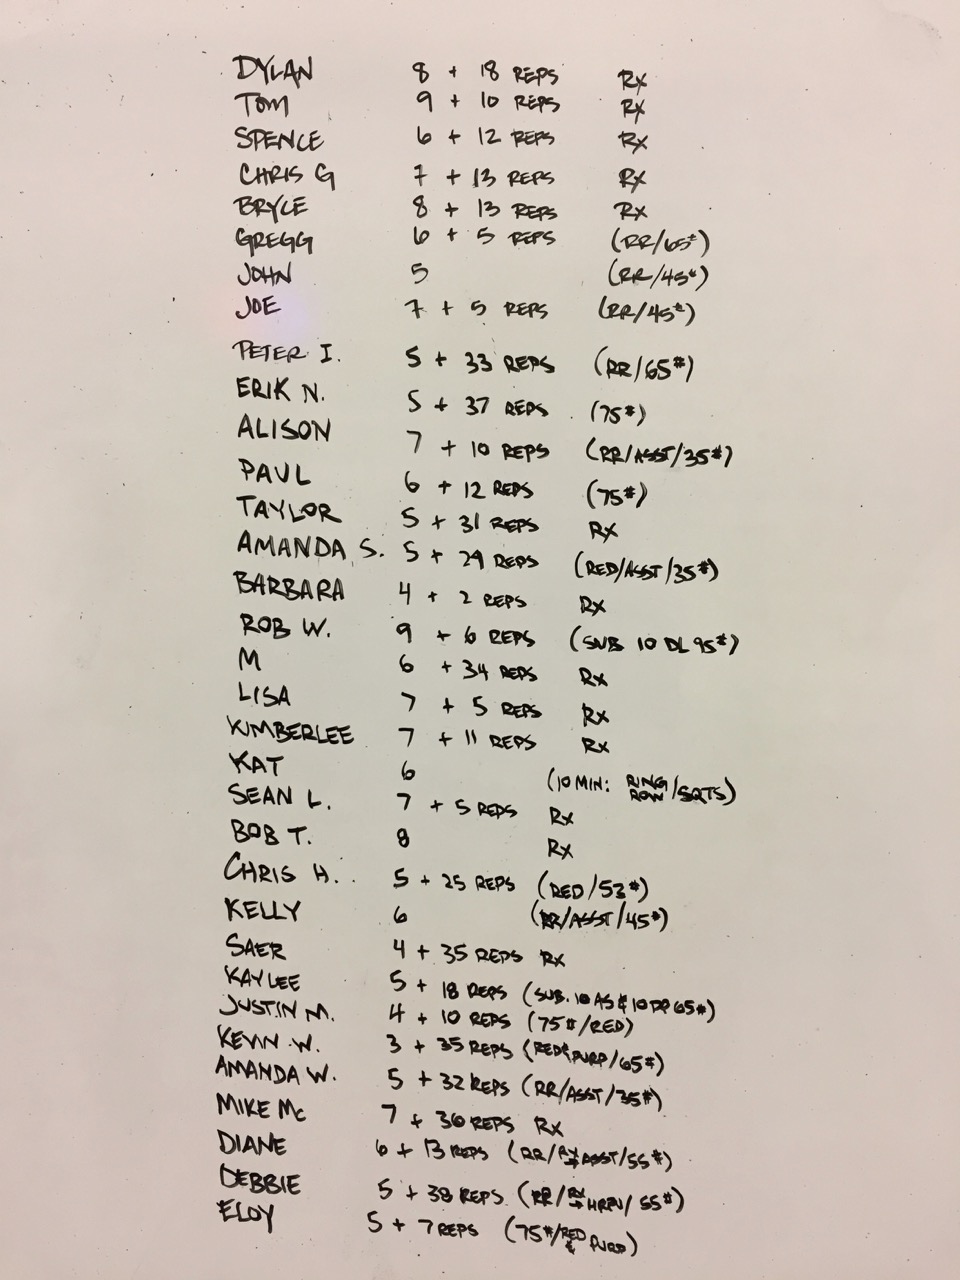 DYLAN 8 + 18 REPS Rx
TOM 9 + 10 REPS Rx
SPENCE 6 + 12 REPS Rx
CHRIS G 7 + 13 REPS Rx
BRYCE 8 + 13 REPS Rx
GREGG 6 + 5 REPS (RR/65#)
JOHN 5 (RR/45#)
JOE 7 + 5 REPS (RR/45#)
PETER I. 5 + 33 REPS (RR/65#)
ERIK N. 5 + 37 REPS (75#)
ALISON 7 + 10 REPS (RR/ASST/35#)
PAUL 6 + 12 REPS (75#)
TAYLOR 5 + 31 REPS Rx
AMANDA S. 5 + 29 REPS (RED/ASST/35#)
BARBARA 4 + 2 REPS Rx
ROB W. 9 + 6 REPS (SUB 10 DL 95#)
M 6 + 34 REPS Rx
LISA 7 + 5 REPS Rx
KIMBERLEE 7 + 11 REPS Rx
KAT 6 (10 MIN: RING ROW/SQTS)
SEAN L. 7 + 5 REPS Rx
BOB T. 8 Rx
CHRIS H. 5 + 25 REPS (RED/53#)
KELLY 6 (RR/ASST/45#)
SAER 4 + 35 REPS Rx
KAYLEE 5 + 18 REPS (SUB. 10 AS & 10 DP 65#)
JUSTIN M. 4 + 10 REPS (75#/RED)
KEVIN W. 3 + 35 REPS (RED & PURP/65#)
AMANDA W. 5 + 32 REPS (RR/ASST/35#)
MIKE Mc 7 + 36 REPS Rx
DIANE 6 + 13 REPS (RR/Rx→ASST/55#)
DEBBIE 5 + 38 REPS (RR/Rx→HRPU/55#)
ELOY 5 + 7 REPS (75#/RED & PURP)